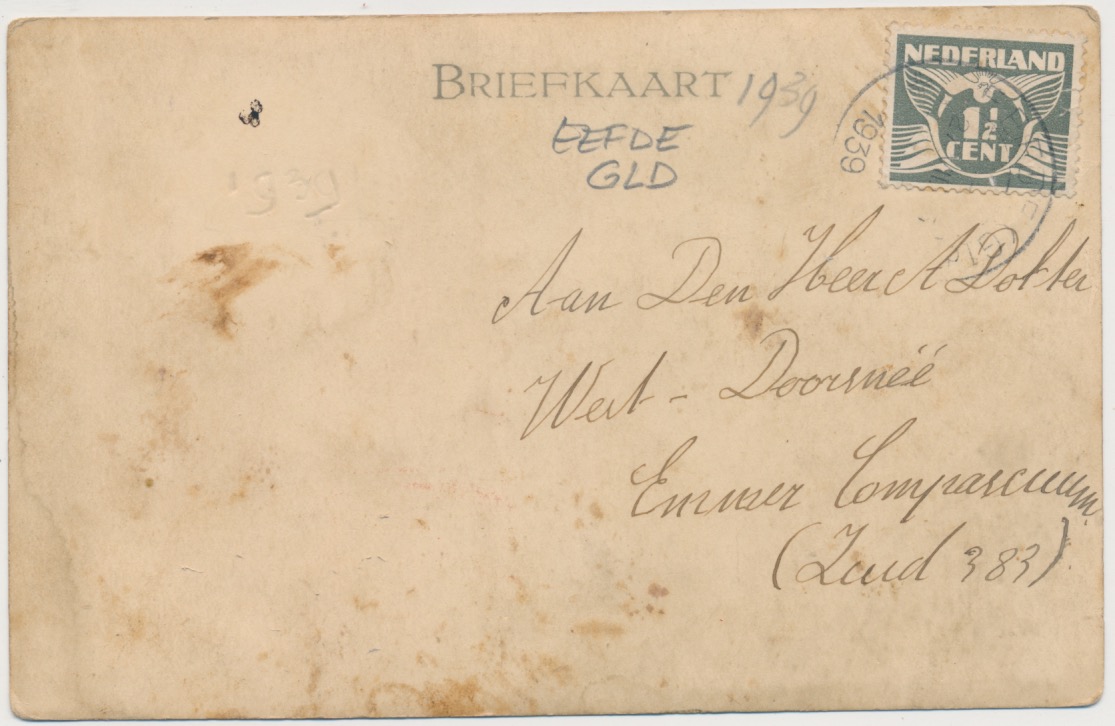 BRIEFKAART 1939
EEFDE
GLD
1939
NEDERLAND
1½
CENT
1939
Aan Den Heer A Dokter
West - Doorsneë
Emmer Compascuum.
(Zuid 383).